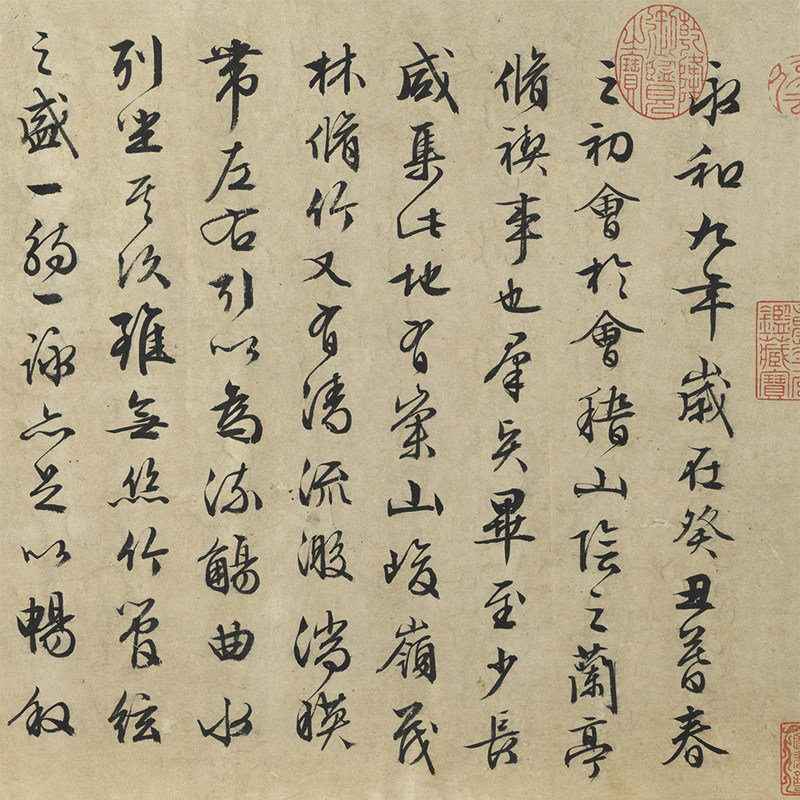 永和九年歲在癸丑暮春
之初會於會稽山陰之蘭亭
脩禊事也羣賢畢至少長
咸集此地有崇山峻嶺茂
林脩竹又有清流激湍暎
帶左右引以為流觴曲水
列坐其次雖無絲竹管絃
之盛一觴一詠亦足以暢叙
乾隆御覽之寶
鑑藏寶